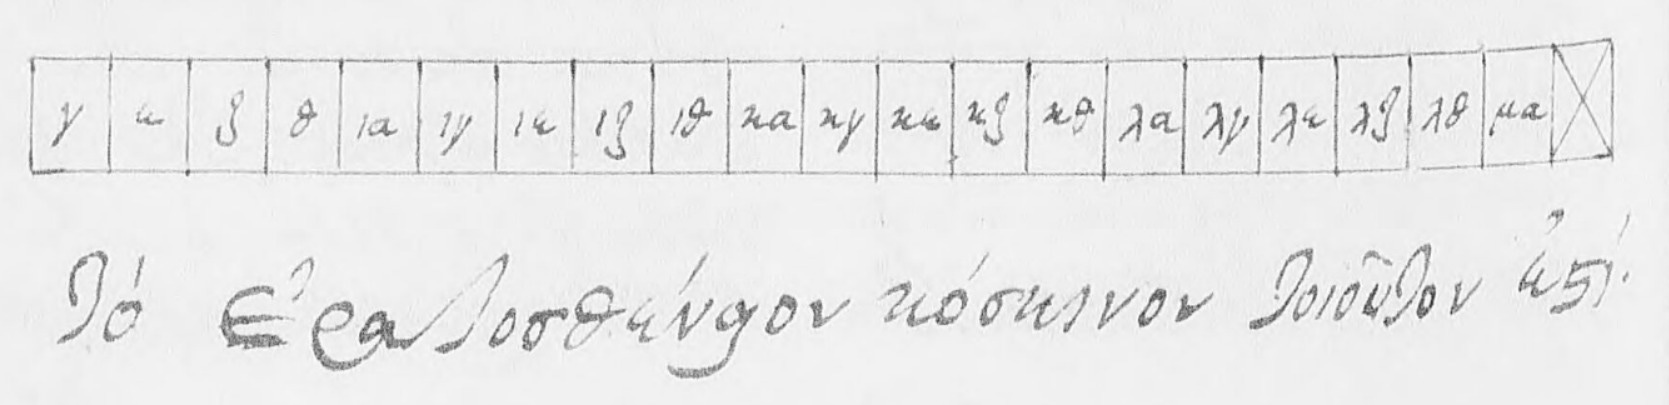 γ ε ζ θ ια ιγ ιε ιζ ιθ κα κγ κε κζ κθ λα λγ λε λζ λθ μα
Τό Ἐρατοσθένειον κόσκινον τοιοῦτον ἐστί.